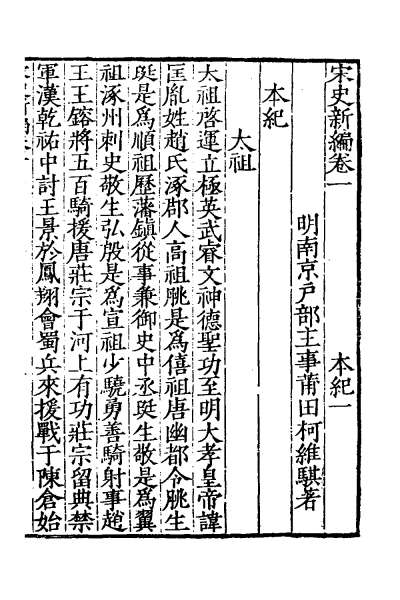 宋史新編卷一 本紀一
明南京戶部主事莆田柯維騏著
本紀
太祖
太祖啓運立極英武睿文神德聖功至明大孝皇帝諱
匡胤姓趙氏涿郡人高祖脁是爲僖祖唐幽都令脁生
珽是爲順祖歷藩鎮從事兼御史中丞珽生敬是爲翼
祖涿州刺史敬生弘殷是爲宣祖少驍勇善騎射事趙
王王鎔將五百騎援唐莊宗于河上有功莊宗留典禁
軍漢乾祐中討王景於鳳翔會蜀兵來援戰于陳倉始